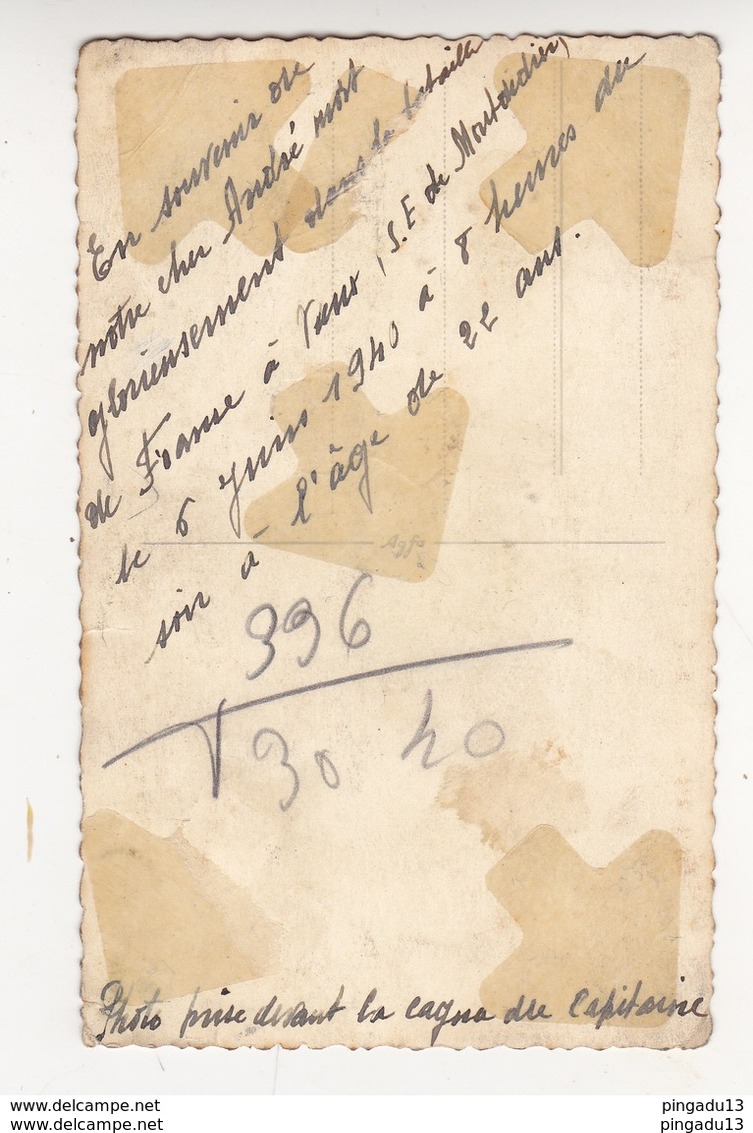 En souvenir de
notre cher André mort
glorieusement dans la bataille
de France à Vaux, (S.E de Montdidier)
le 6 Juin 1940 à 8 heures du
soir à l'âge de 22 ans.
Agfa
396
30 40
Photo prise devant la cagna du Capitaine
pingadu13
pingadu13
pingadu13
pingadu13